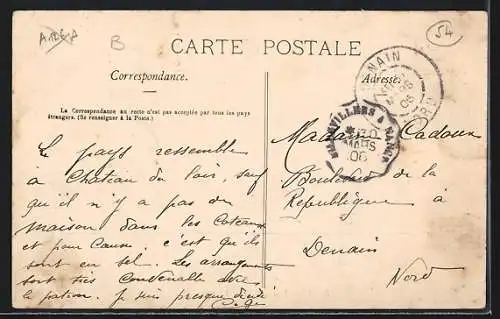 54
B
CARTE POSTALE
Correspondance.
Adresse
La Correspondance au recto n'est pas acceptée par tous les pays
étrangers. (Se renseigner à la Poste.)
DENAIN
MARS
06
NORD
BLAINVILLE
MARS
06
Le pays ressemble
à Château du loir, sauf
qu'il n'y a pas de
maison dans les Coteaux
et pour Cause, c'est qu'ils
sont en sel. Les arrangements
sont très convenable avec
le patron. Je suis presque
Madame Cadoux
Boulevard de la
République à
Denain
Nord